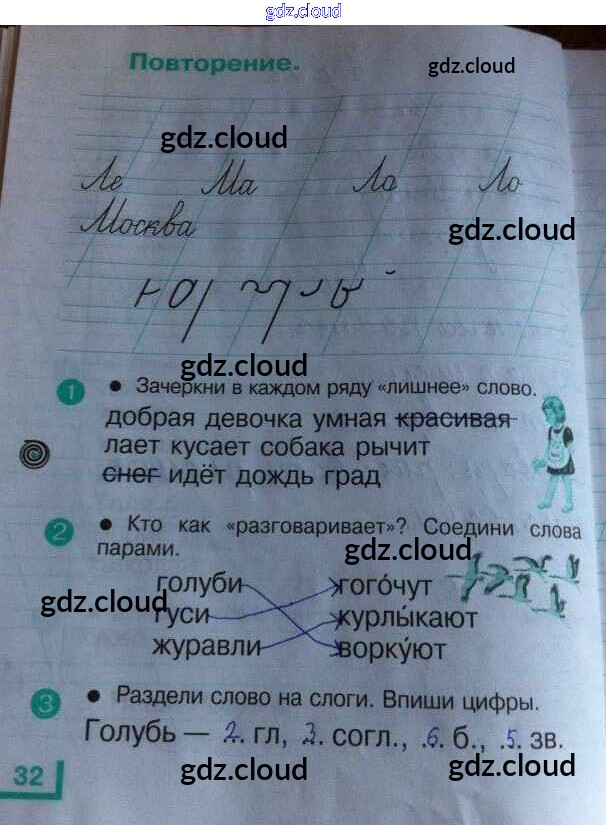 gdz.cloud
Повторение.
gdz.cloud
gdz.cloud
Ле Ма Ла Ло
Москва
gdz.cloud
gdz.cloud
1 • Зачеркни в каждом ряду «лишнее» слово.
добрая девочка умная красивая
лает кусает собака рычит
снег идёт дождь град
2 • Кто как «разговаривает»? Соедини слова
парами.
gdz.cloud
голуби гогóчут
gdz.cloud
гуси курлы́кают
журавли ворку́ют
3 • Раздели слово на слоги. Впиши цифры.
Голубь — 2. гл, 3. согл., .6. б., .5. зв.
32
gdz.cloud
gdz.cloud